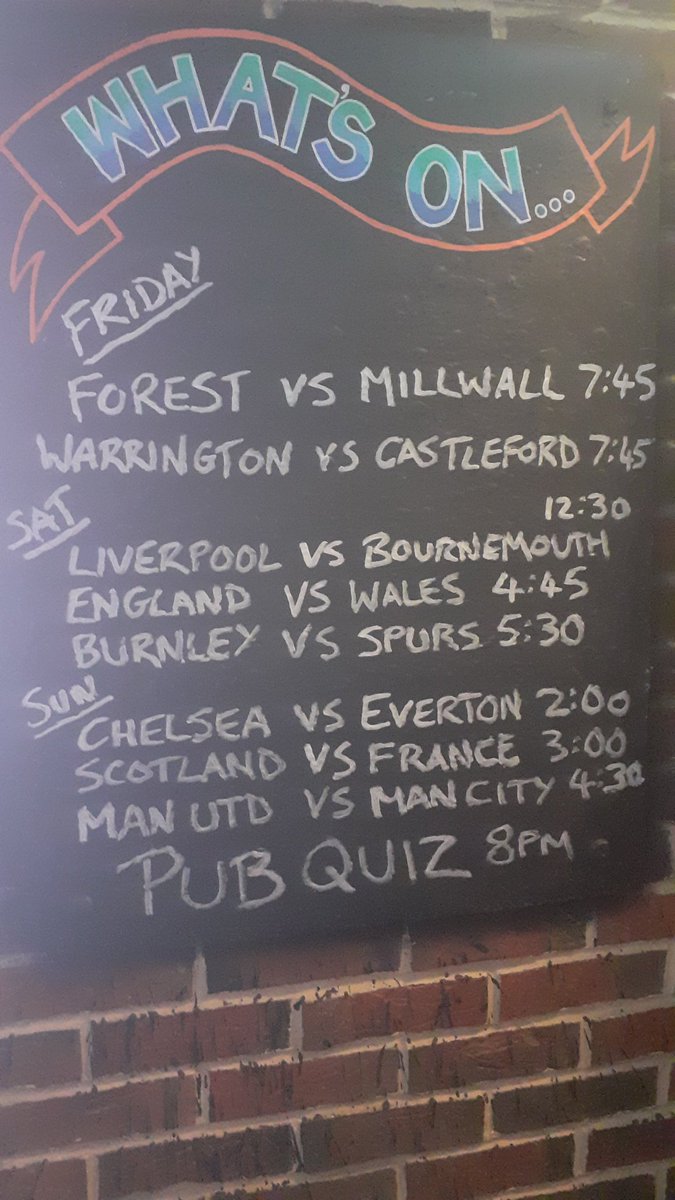 WHAT'S ON...
FRIDAY
FOREST VS MILLWALL 7:45
WARRINGTON VS CASTLEFORD 7:45
SAT
12:30
LIVERPOOL VS BOURNEMOUTH
ENGLAND VS WALES 4:45
BURNLEY VS SPURS 5:30
SUN
CHELSEA VS EVERTON 2:00
SCOTLAND VS FRANCE 3:00
MAN UTD VS MAN CITY 4:30
PUB QUIZ 8PM